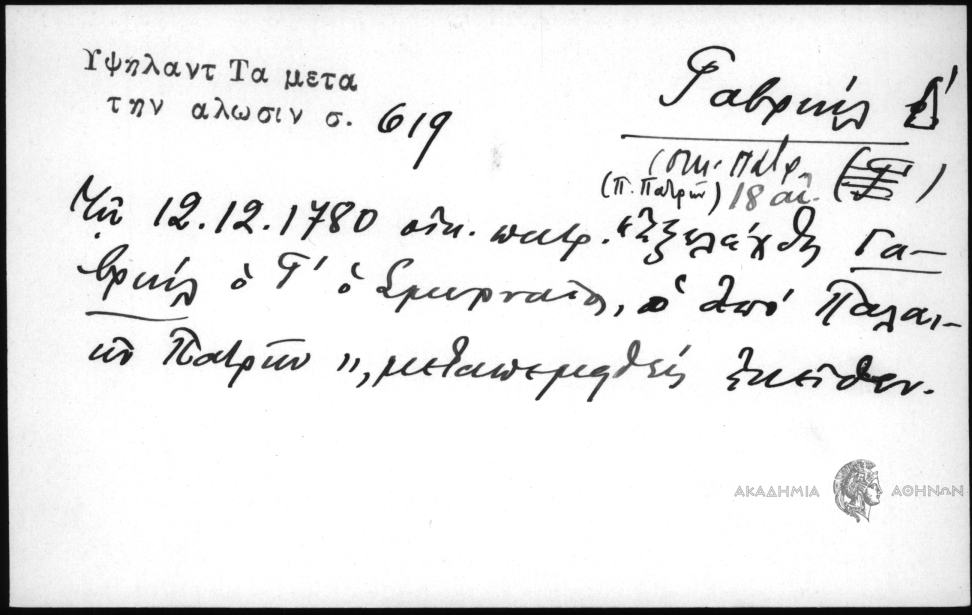 Υψηλαντ Τα μετα
την αλωσιν σ. 619
Γαβριήλ Δ'
οικ. πατρ.
(Π. Πατρῶν) 18 αἰ.
Τῇ 12.12.1780 οἰκ. πατρ. "ἐξελέχθη Γα-
βριήλ ὁ Γ' ὁ Σμυρναῖος, ὁ ἀπό Παλαι-
ῶν Πατρῶν", μεταπεμφθείς ἐκεῖθεν.
ΑΚΑΔΗΜΙΑ ΑΘΗΝΩΝ